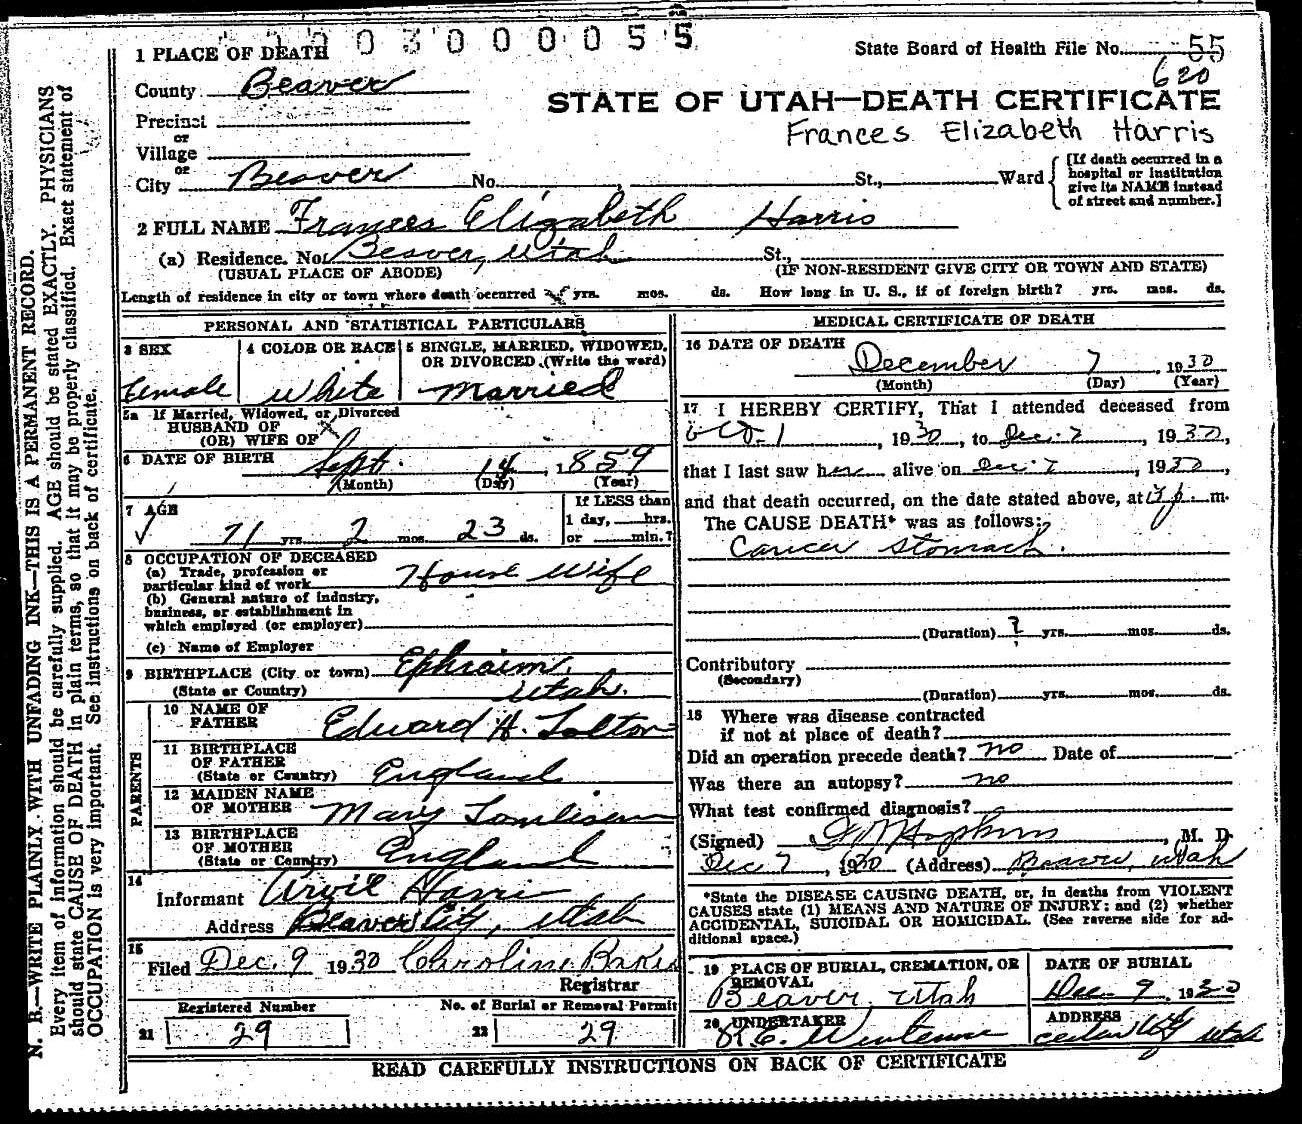 0003000055
1 PLACE OF DEATH
State Board of Health File No. 55
620
County Beaver
STATE OF UTAH—DEATH CERTIFICATE
Precinct
or
Frances Elizabeth Harris
Village
or
City Beaver No. , St., Ward
[If death occurred in a
hospital or institution
give its NAME instead
of street and number.]
2 FULL NAME Frances Elizabeth Harris
(a) Residence. No. Beaver, Utah St.,
(USUAL PLACE OF ABODE) (IF NON-RESIDENT GIVE CITY OR TOWN AND STATE)
Length of residence in city or town where death occurred yrs. mos. ds. How long in U. S., if of foreign birth? yrs. mos. ds.
PERSONAL AND STATISTICAL PARTICULARS
3 SEX 4 COLOR OR RACE 5 SINGLE, MARRIED, WIDOWED,
OR DIVORCED (Write the word)
Female White Married
5a If Married, Widowed, or Divorced
HUSBAND OF
(OR) WIFE OF
6 DATE OF BIRTH Sept. 14, 1859
(Month) (Day) (Year)
7 AGE
71 yrs. 2 mos. 23 ds.
If LESS than
1 day, hrs.
or min.?
8 OCCUPATION OF DECEASED
(a) Trade, profession or
particular kind of work House wife
(b) General nature of industry,
business, or establishment in
which employed (or employer)
(c) Name of Employer
9 BIRTHPLACE (City or town) Ephraim,
(State or Country) Utah.
PARENTS
10 NAME OF
FATHER Edward H. Tolton
11 BIRTHPLACE
OF FATHER
(State or Country) England
12 MAIDEN NAME
OF MOTHER Mary Tomlinson
13 BIRTHPLACE
OF MOTHER
(State or Country) England
14
Informant Arvil Harris
Address Beaver City, Utah
15
Filed Dec. 9 1930 Caroline
Registrar
Registered Number No. of Burial or Removal Permit
21 29 22 29
MEDICAL CERTIFICATE OF DEATH
16 DATE OF DEATH
December 7, 1930
(Month) (Day) (Year)
17 I HEREBY CERTIFY, That I attended deceased from
Oct. 1, 1930, to Dec. 7, 1930,
that I last saw her alive on Dec. 7, 1930,
and that death occurred, on the date stated above, at p m.
The CAUSE DEATH* was as follows:
Cancer Stomach.
(Duration) ? yrs. mos. ds.
Contributory
(Secondary)
(Duration) yrs. mos. ds.
18 Where was disease contracted
if not at place of death?
Did an operation precede death? no Date of
Was there an autopsy? no
What test confirmed diagnosis?
(Signed) Hopkins, M. D.
Dec 7, 1930 (Address) Beaver, Utah
*State the DISEASE CAUSING DEATH, or, in deaths from VIOLENT
CAUSES state (1) MEANS AND NATURE OF INJURY; and (2) whether
ACCIDENTAL, SUICIDAL OR HOMICIDAL. (See reverse side for ad-
ditional space.)
19 PLACE OF BURIAL, CREMATION, OR
REMOVAL
Beaver, Utah
DATE OF BURIAL
Dec. 9, 1930
20 UNDERTAKER
ADDRESS
Cedar City Utah
READ CAREFULLY INSTRUCTIONS ON BACK OF CERTIFICATE
N. B.—WRITE PLAINLY WITH UNFADING INK—THIS IS A PERMANENT RECORD.
Every item of information should be carefully supplied. AGE should be stated EXACTLY. PHYSICIANS
should state CAUSE OF DEATH in plain terms, so that it may be properly classified. Exact statement of
OCCUPATION is very important. See instructions on back of certificate.